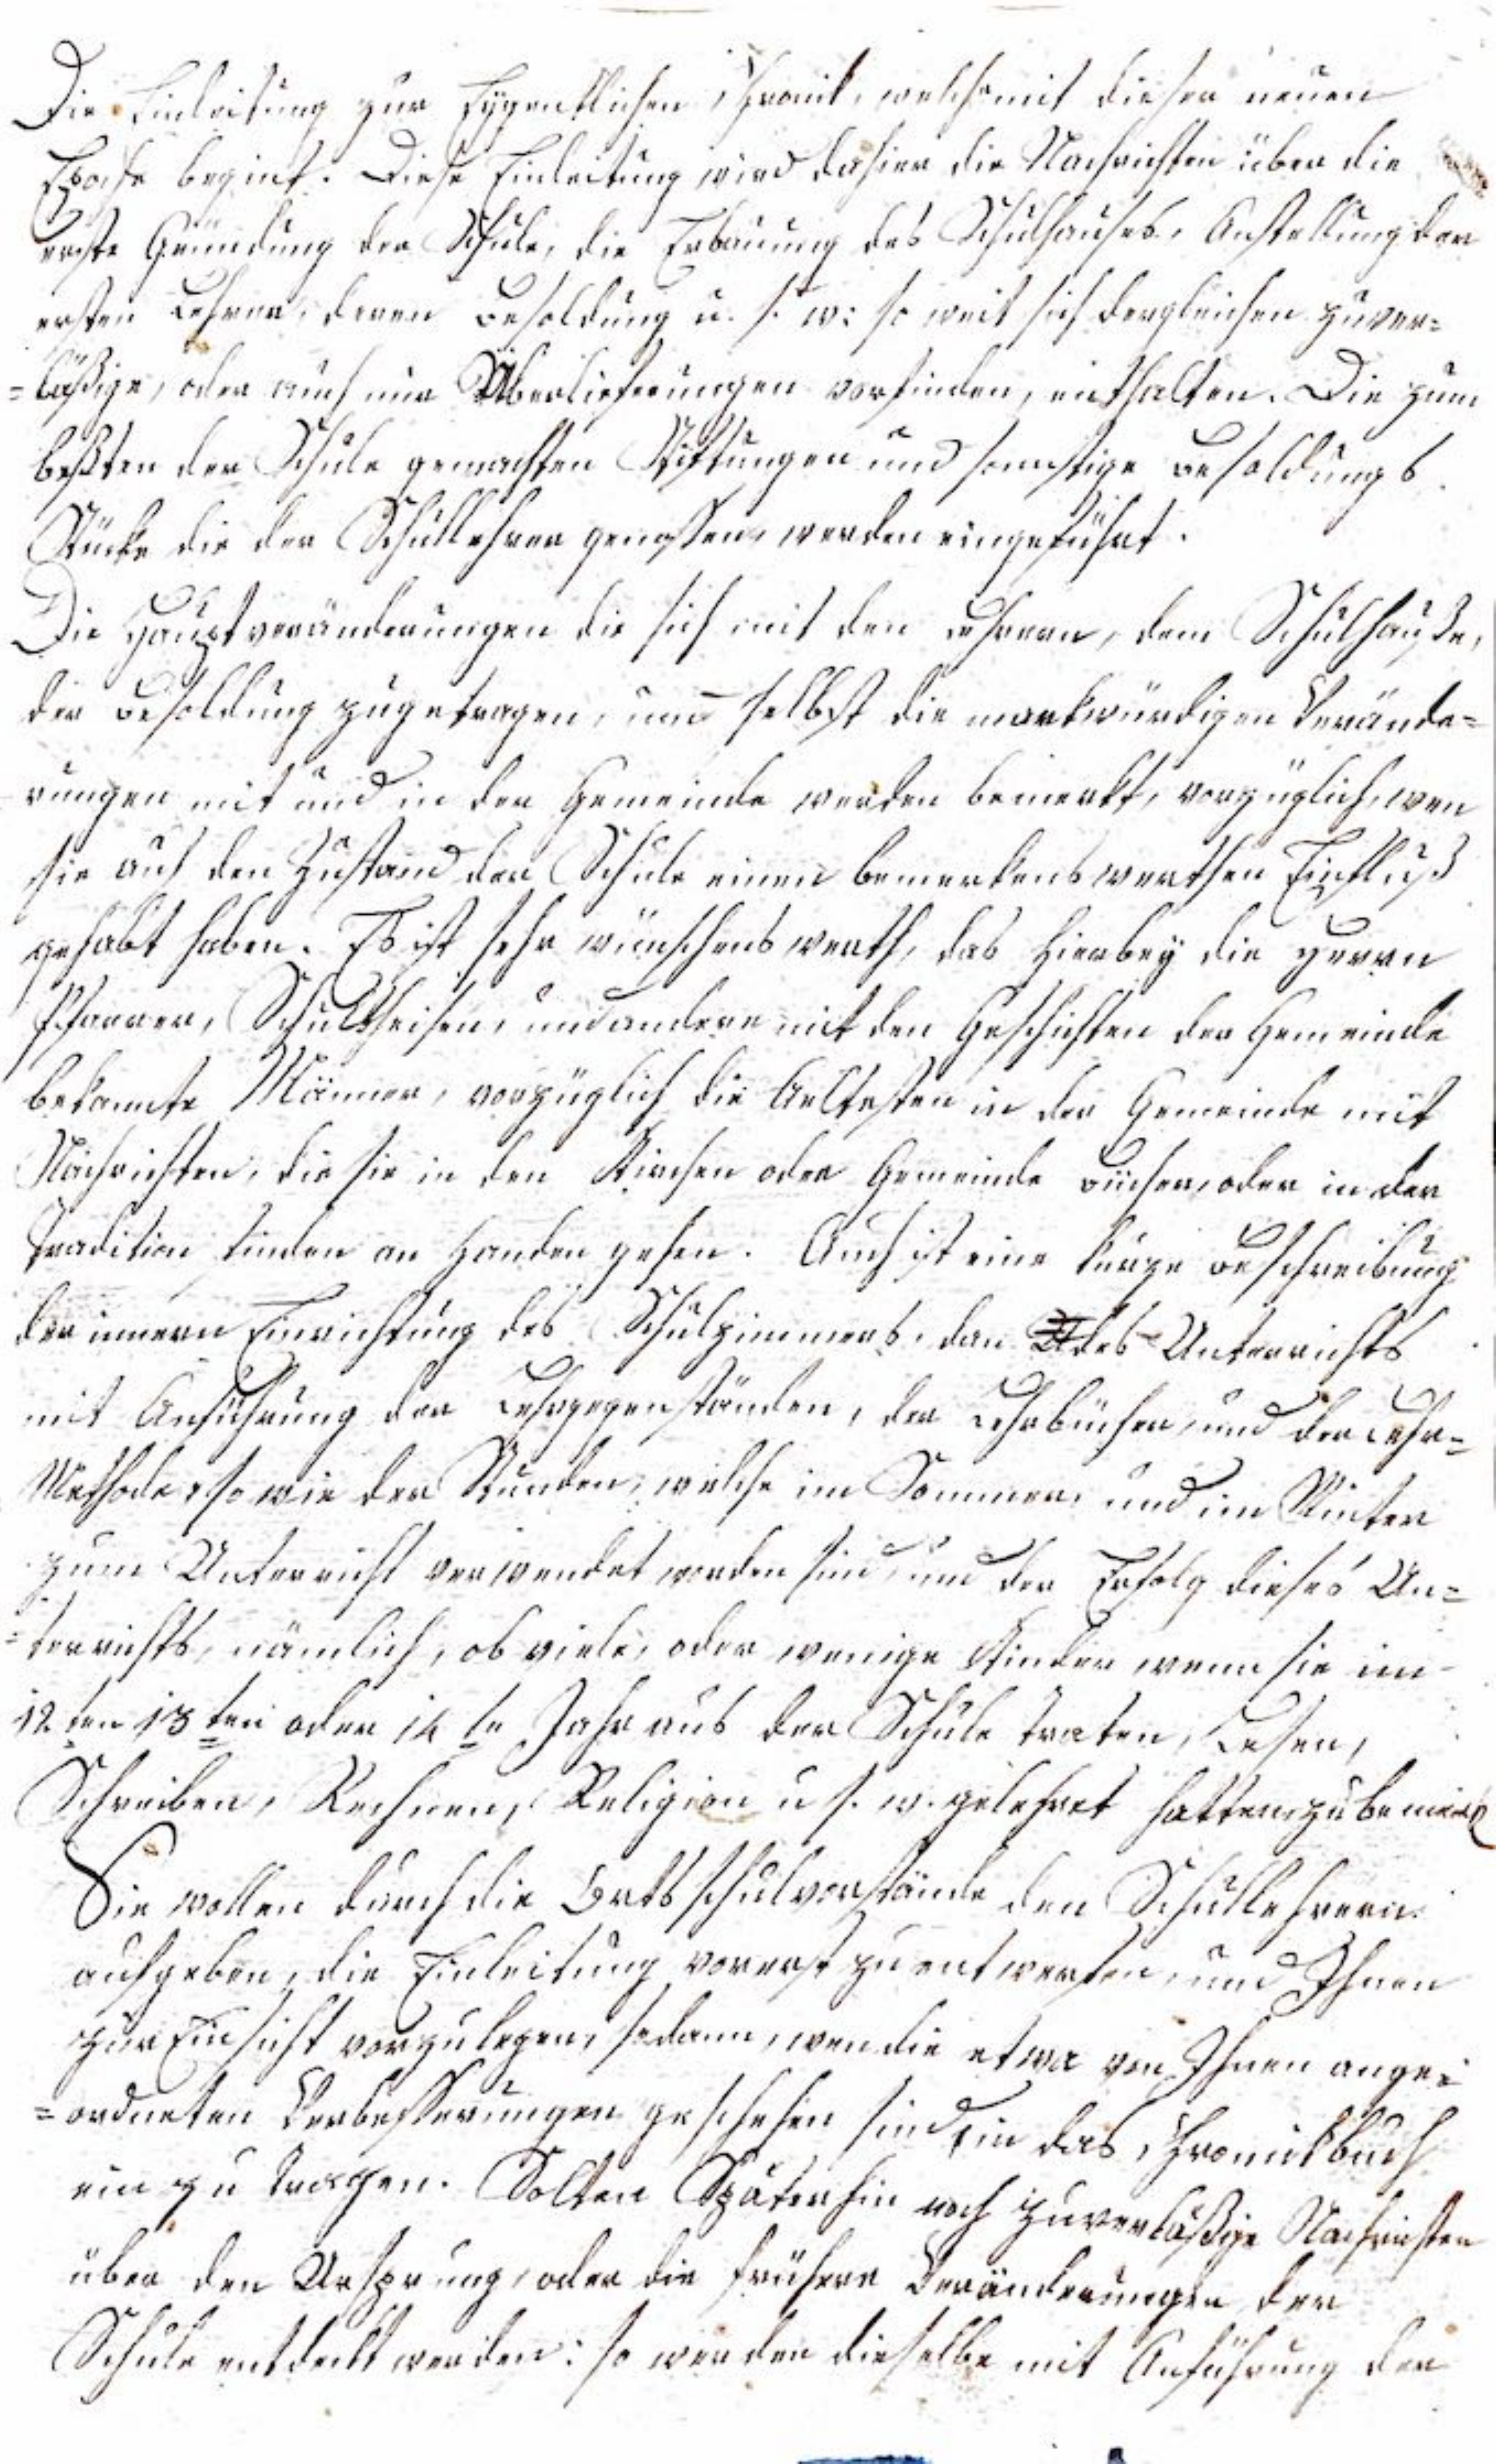 Die Einleitung zur Eygentlichen Chronik, welche mit dieser neuen
Epoche begint. Diese Einleitung wird dahier die Nachrichten über die
erste Gründung der Schule, die Erbauung des Schulhauses, Anstellung der
ersten Lehrer, deren Besoldung u. s. w: so weit sich dergleichen zuver=
=läßige, oder auch nur Überlieferungen vorfinden, enthalten. Die zum
beßten der Schule gemachten Stiftungen und sonstige Besoldungs
Stücke die der Schullehrer genossen, werden eingeführt.
Die Hauptveränderungen die sich mit den Lehrern, dem Schulhauße,
der Besoldung zugetragen, und selbst die markwürdigen Verände=
rungen mit und in der Gemeinde werden bemerkt, vorzüglich, wen
sie auf den Zustand der Schule einen bemerkenswerthen Einfluß
gehabt haben. Es ist sehr wünschenswerth, das hierbey die Herrn
Pfarrer, Schultheisen, und andere mit den Geschichten der Gemeinde
bekannte Männer, vorzüglich die Aeltesten in der Gemeinde mit
Nachrichten, die sie in den Kirchen oder Gemeinde Bücher, oder in der
Tradition finden an Handen gehen. Auch ist eine kurze Beschreibung
der innern Einrichtung des Schulzimmers, dan des Unterrichts
mit Anführung der Lehrgegenständen, der Lehrbücher, und der Lehr=
Methode, so wie der Stunden, welche im Sommer, und im Winter
zum Unterricht verwendet worden sind, und der Erfolg dieses Un=
=terrichts, nämlich, ob viele, oder wenige Kinder wenn sie im
12ten 13ten oder 14te Jahr aus der Schule traten, Lesen,
Schreiben, Rechnen, Religion u s. w. gelehret hatten, zu bemerk
Sie wollen durch die Ortsschulvorstände den Schullehrern
aufgeben, die Einleitung vorerst zu entwerfen, und Ihnen
zur Einsicht vorzulegen, sodann, wen die etwa von Ihnen ange=
=ordneten Verbesserungen geschehen sind, in das Chronikbuch
ein zu tragen. Solten Späterhin noch zuverläßige Nachrichten
über den Ursprung, oder die frühere Veränderungen der
Schule entdeckt werden: so werden dieselbe mit Anführung der